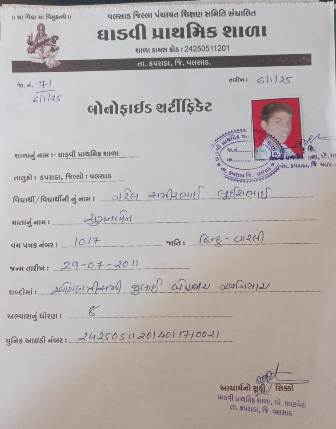 ॥ सा विद्या या विमुक्तये ॥
વલસાડ જિલ્લા પંચાયત શિક્ષણ સમિતિ સંચાલિત
ઘાડવી પ્રાથમિક શાળા
શાળા ડાયસ કોડ : 24250511201
તા. કપરાડા, જિ. વલસાડ.
જા. નં. 71
6/1/25
તારીખ : 6/1/25
બોનોફાઈડ સર્ટીફિકેટ
શાળાનું નામ :- ઘાડવી પ્રાથમિક શાળા
તાલુકો : કપરાડા, જિલ્લો : વલસાડ
વિદ્યાર્થી / વિદ્યાર્થીની નું નામ :
માતાનું નામ :
વય પત્રક નંબર : 1017 જાતિ : હિન્દુ - વારલી
જન્મ તારીખ : 29-07-2011
શબ્દોમાં : ઓગણત્રીસમી જુલાઈ બે હજાર અગિયાર
અભ્યાસનું ધોરણ : 8
યુનિક આઈડી નંબર : 24250511201401710021
આચાર્યની સહી / સિક્કો
ઘાડવી પ્રાથમિક શાળા,
તા. કપરાડા, જિ. વલસાડ